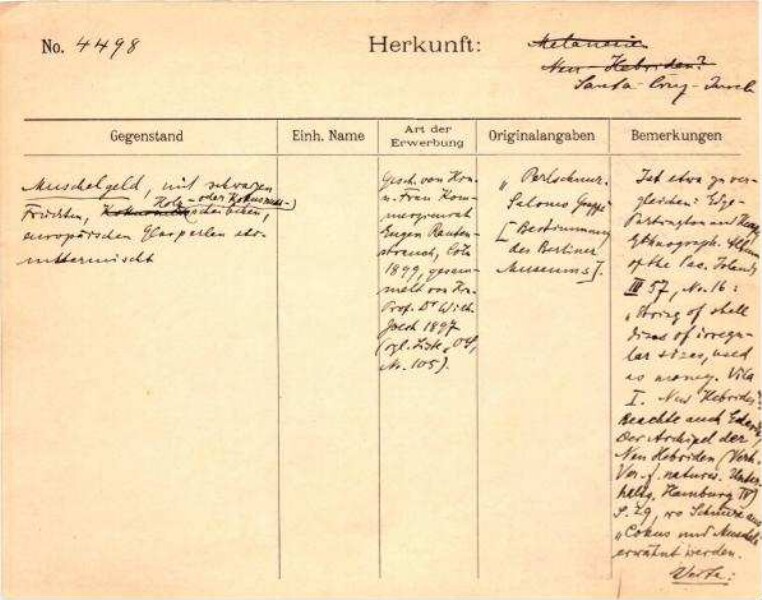 No. 4498
Herkunft:
Melanesien
Neu-Hebriden?
Santa-Cruz-Inseln
Gegenstand
Einh. Name
Art der Erwerbung
Originalangaben
Bemerkungen
Muschelgeld, mit schwarzen
Holz- oder Kokosnuss-
Früchten, scheiben,
europäischen Glasperlen etc.
untermischt
Gesch. von Hrn.
u. Frau Kom-
merzienrat
Eugen Rauten-
strauch, Cöln
1899, gesam-
melt von Hn.
Prof. Dr Wilh.
Joest 1897
(vgl. Liste
Nr. 105).
„Perlschnur.
Salomo Gruppe
[Bestimmung
des Berliner
Museums].
Ist etwa zu ver-
gleichen: Edge-
Partington and Heape
Ethnograph. Album
of the Pac. Islands
III 57, No. 16:
„String of shell
discs of irregu-
lar sizes, used
as money. Vila
I. New Hebrides"
Beachte auch
Der Archipel der
Neu Hebriden (Verh.
Ver. f. naturw. Unter-
haltg. Hamburg IV)
S. 29, wo Schnüre aus
„Cokus und Muscheln
erwähnt werden.
Verte: